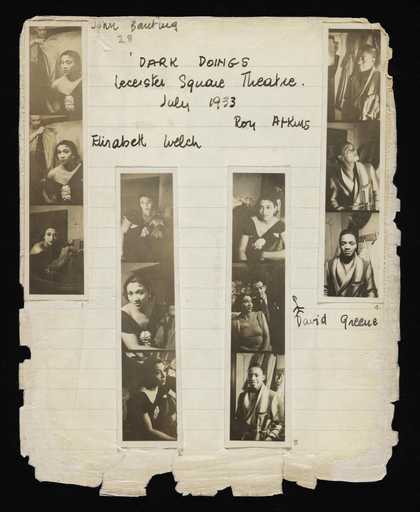 John Banting
28
'DARK DOINGS
Leicester Square Theatre.
July 1933
Roy Atkins
Elisabeth Welch
David Greene